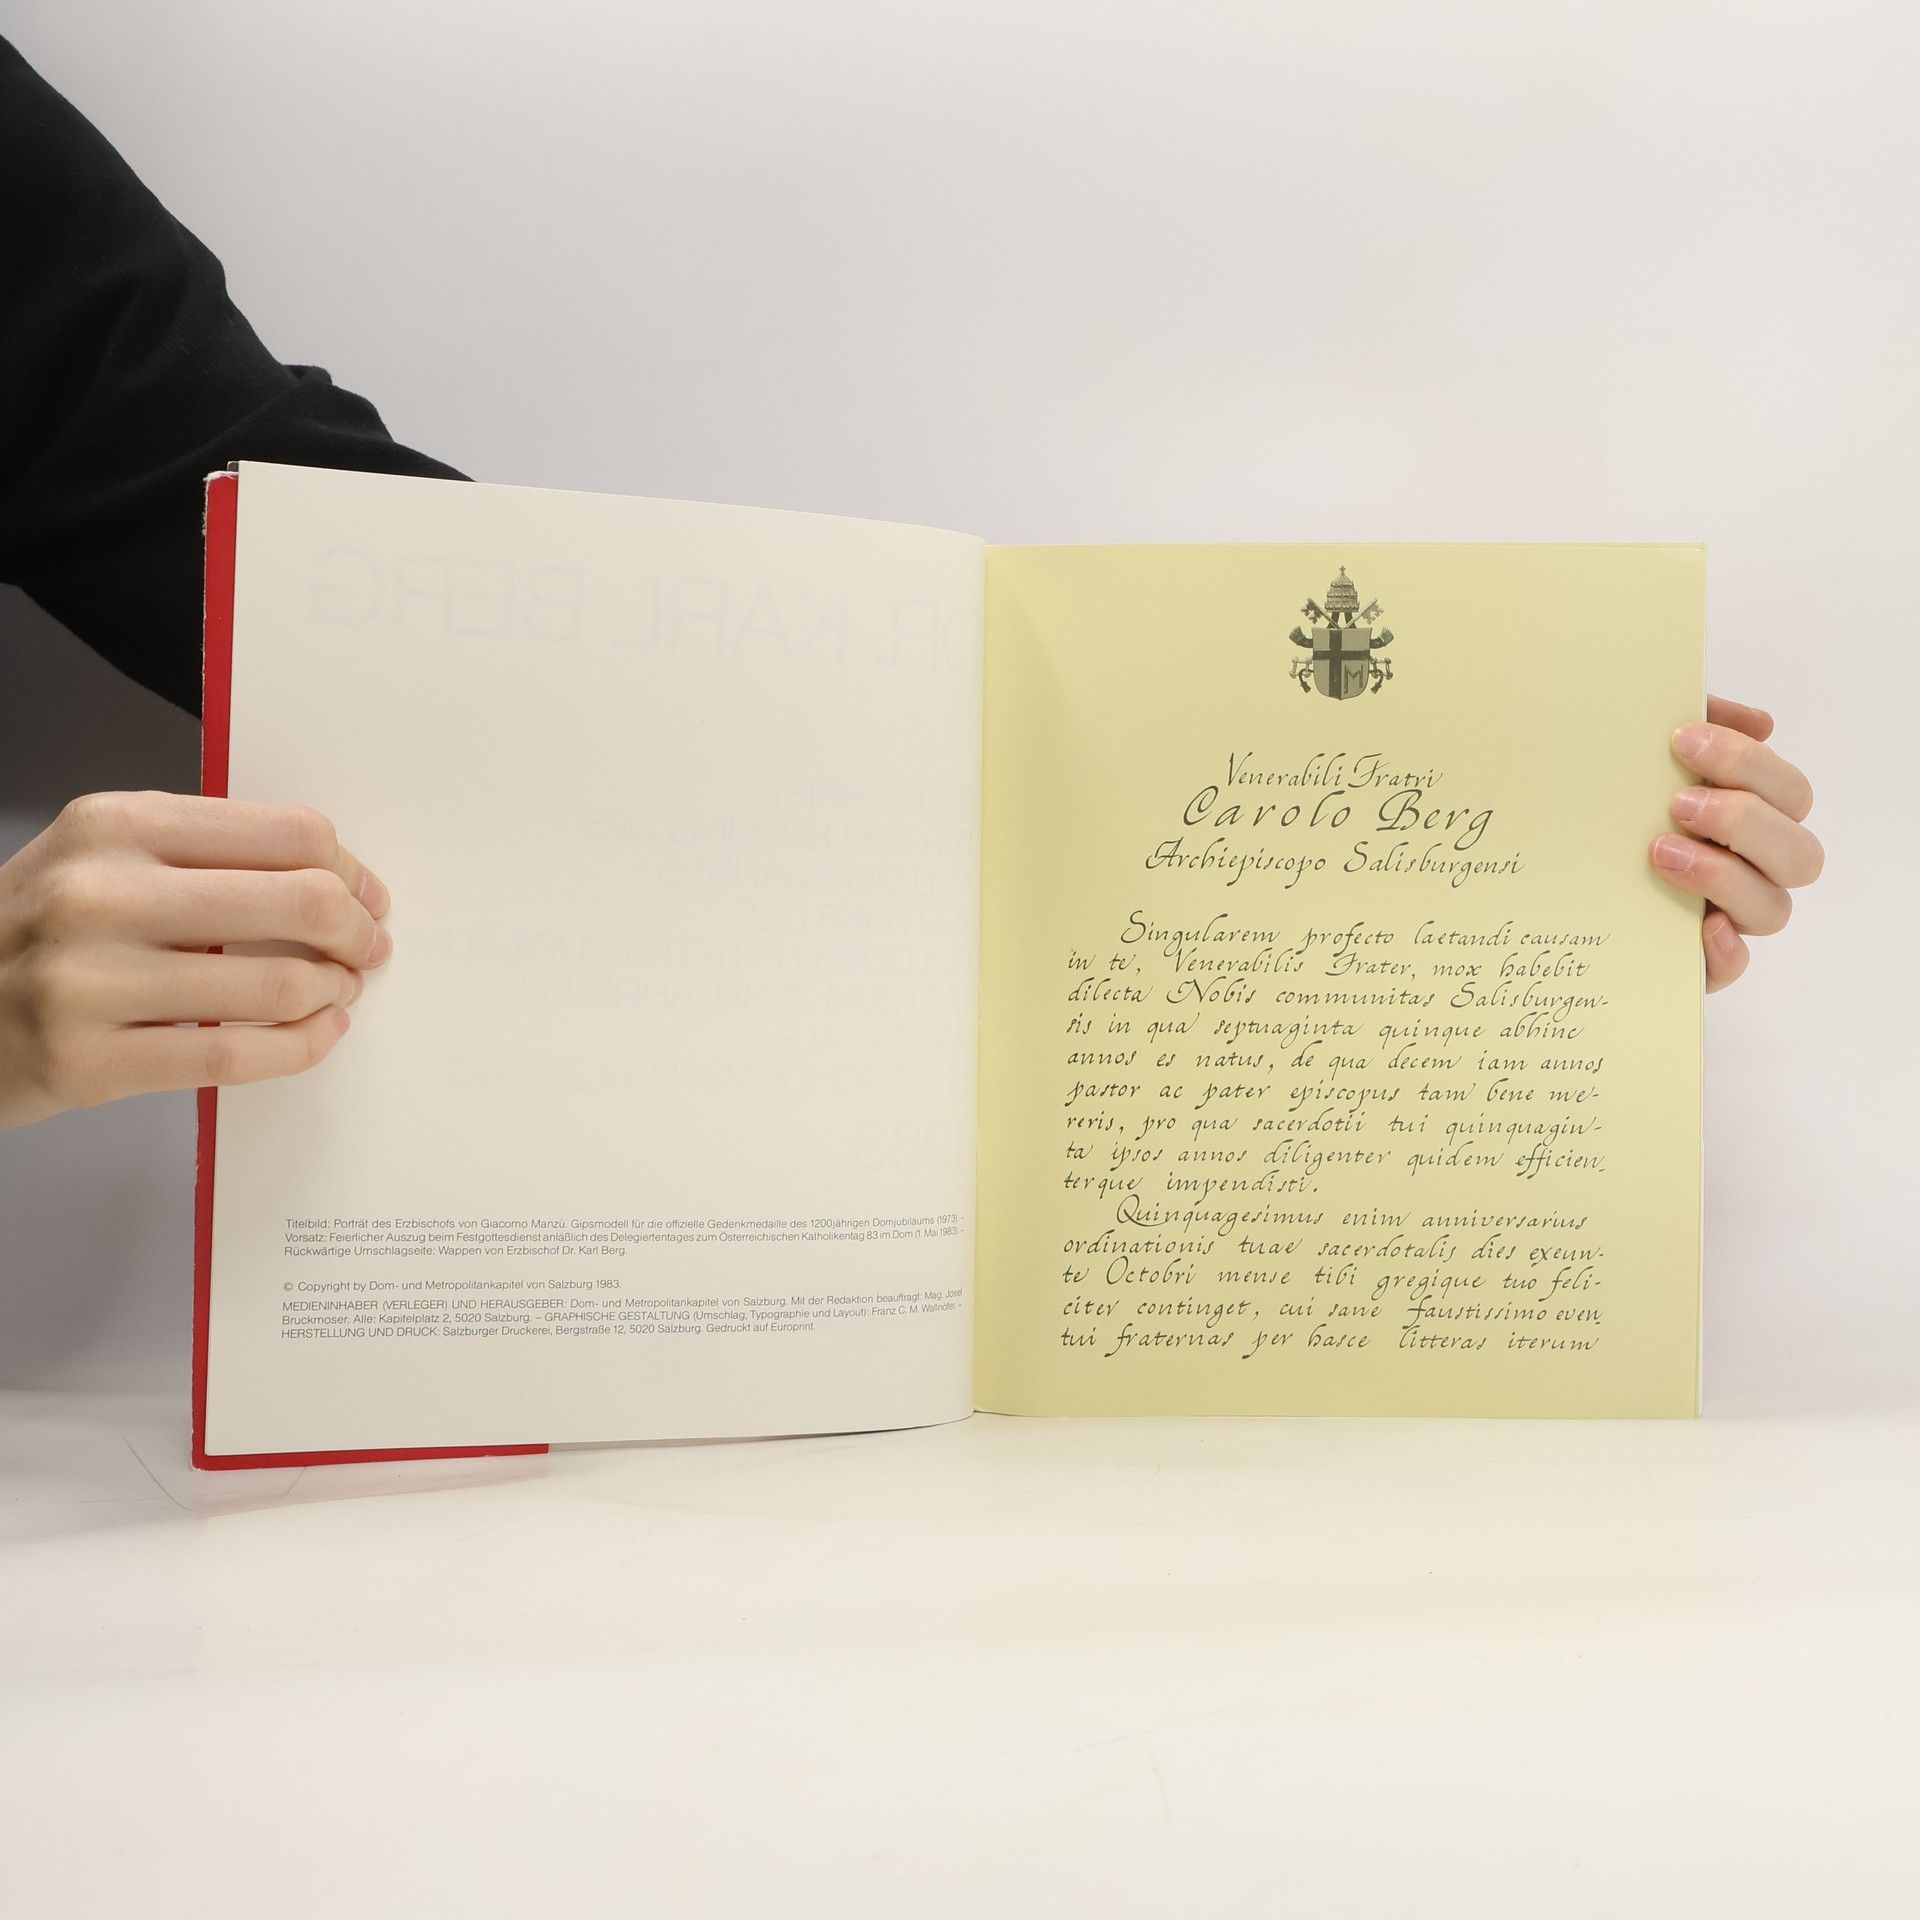 Titelbild: Porträt des Erzbischofs von Giacomo Manzù. Gipsmodell für die offizielle Gedenkmedaille des 1200jährigen Domjubiläums (1973) –
Vorsatz: Feierlicher Auszug beim Festgottesdienst anläßlich des Delegiertentages zum Österreichischen Katholikentag 83 im Dom (1. Mai 1983) –
Rückwärtige Umschlagseite: Wappen von Erzbischof Dr. Karl Berg.
© Copyright by Dom- und Metropolitankapitel von Salzburg 1983.
MEDIENINHABER (VERLEGER) UND HERAUSGEBER: Dom- und Metropolitankapitel von Salzburg. Mit der Redaktion beauftragt: Mag. Josef
Bruckmoser. Alle: Kapitelplatz 2, 5020 Salzburg. – GRAPHISCHE GESTALTUNG (Umschlag, Typographie und Layout): Franz C. M. Wallnöfer. –
HERSTELLUNG UND DRUCK: Salzburger Druckerei, Bergstraße 12, 5020 Salzburg. Gedruckt auf Europrint.
M
Venerabili Fratri
Carolo Berg
Archiepiscopo Salisburgensi
Singularem profecto laetandi causam
in te, Venerabilis Frater, mox habebit
dilecta Nobis communitas Salisburgen-
sis in qua septuaginta quinque abhinc
annos es natus, de qua decem iam annos
pastor ac pater episcopus tam bene me-
reris, pro qua sacerdotii tui quinquagin-
ta ipsos annos diligenter quidem efficien-
terque impendisti.
Quinquagesimus enim anniversarius
ordinationis tuae sacerdotalis dies exeun-
te Octobri mense tibi gregique tuo feli-
citer continget, cui sane faustissimo even-
tui fraternas per hasce litteras iterum